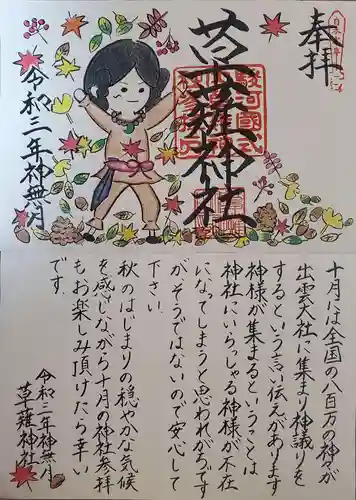 奉拝
草薙神社
駿河國式
令和三年神無月
十月は全国の八百万の神々が
出雲大社に集まり神議りを
するという言い伝えがあります
神様が集まるということは
神社にいらっしゃる神様が不在
になってしまうと思われがちです
がそうではないので安心して
下さい。
秋のはじまりの穏やかな気候
を感じながら十月の神社参拝
もお楽しみ頂けたら幸い
です。
令和三年神無月
草薙神社